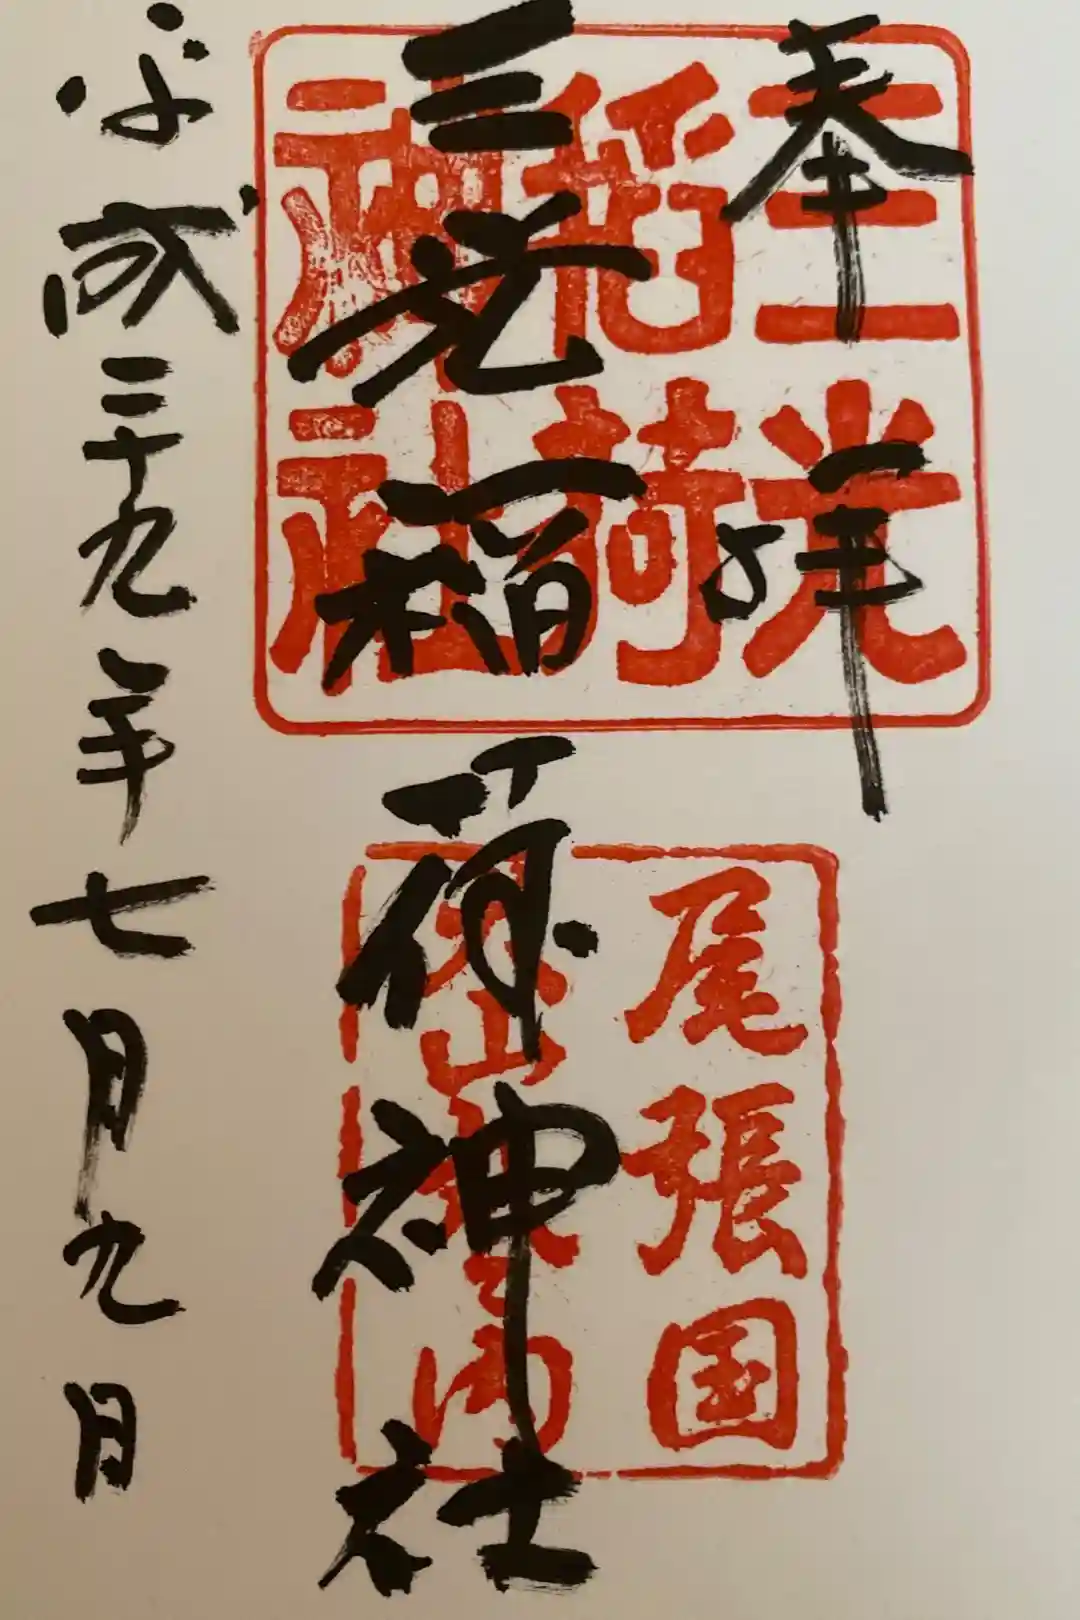 奉拝
三光
稲荷
神社
三光稲荷神社
尾張国
犬山城之内
平成二十九年七月九日